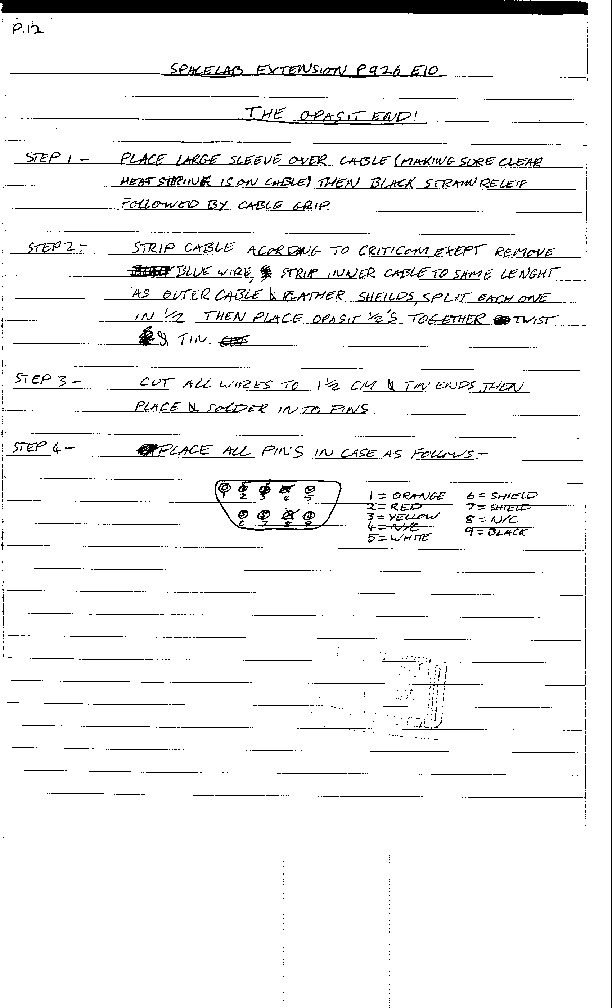 P.12
SPACELAB EXTENSION P926 E10
THE OPASIT END!
STEP 1 - PLACE LARGE SLEEVE OVER CABLE (MAKING SURE CLEAR
HEAT SHRINK IS ON CABLE) THEN BLACK STRAIN RELEIF
FOLLOWED BY CABLE GRIP.
STEP 2 - STRIP CABLE ACORDING TO CRITICOM EXEPT REMOVE
BLUE WIRE, STRIP INNER CABLE TO SAME LENGHT
AS OUTER CABLE & FLATHER SHEILDS, SPLIT EACH ONE
IN 1/2 THEN PLACE OPASIT 1/2'S TOGETHER TWIST
& TIN.
STEP 3 - CUT ALL WIRES TO 1 1/2 CM & TIN ENDS, THEN
PLACE & SOLDER IN TO PINS.
STEP 4 - PLACE ALL PINS IN CASE AS FOLLOWS:-
1 2 3 4 5
6 7 8 9
1 = ORANGE 6 = SHIELD
2 = RED 7 = SHIELD
3 = YELLOW 8 = N/C
4 = N/C 9 = BLACK
5 = WHITE